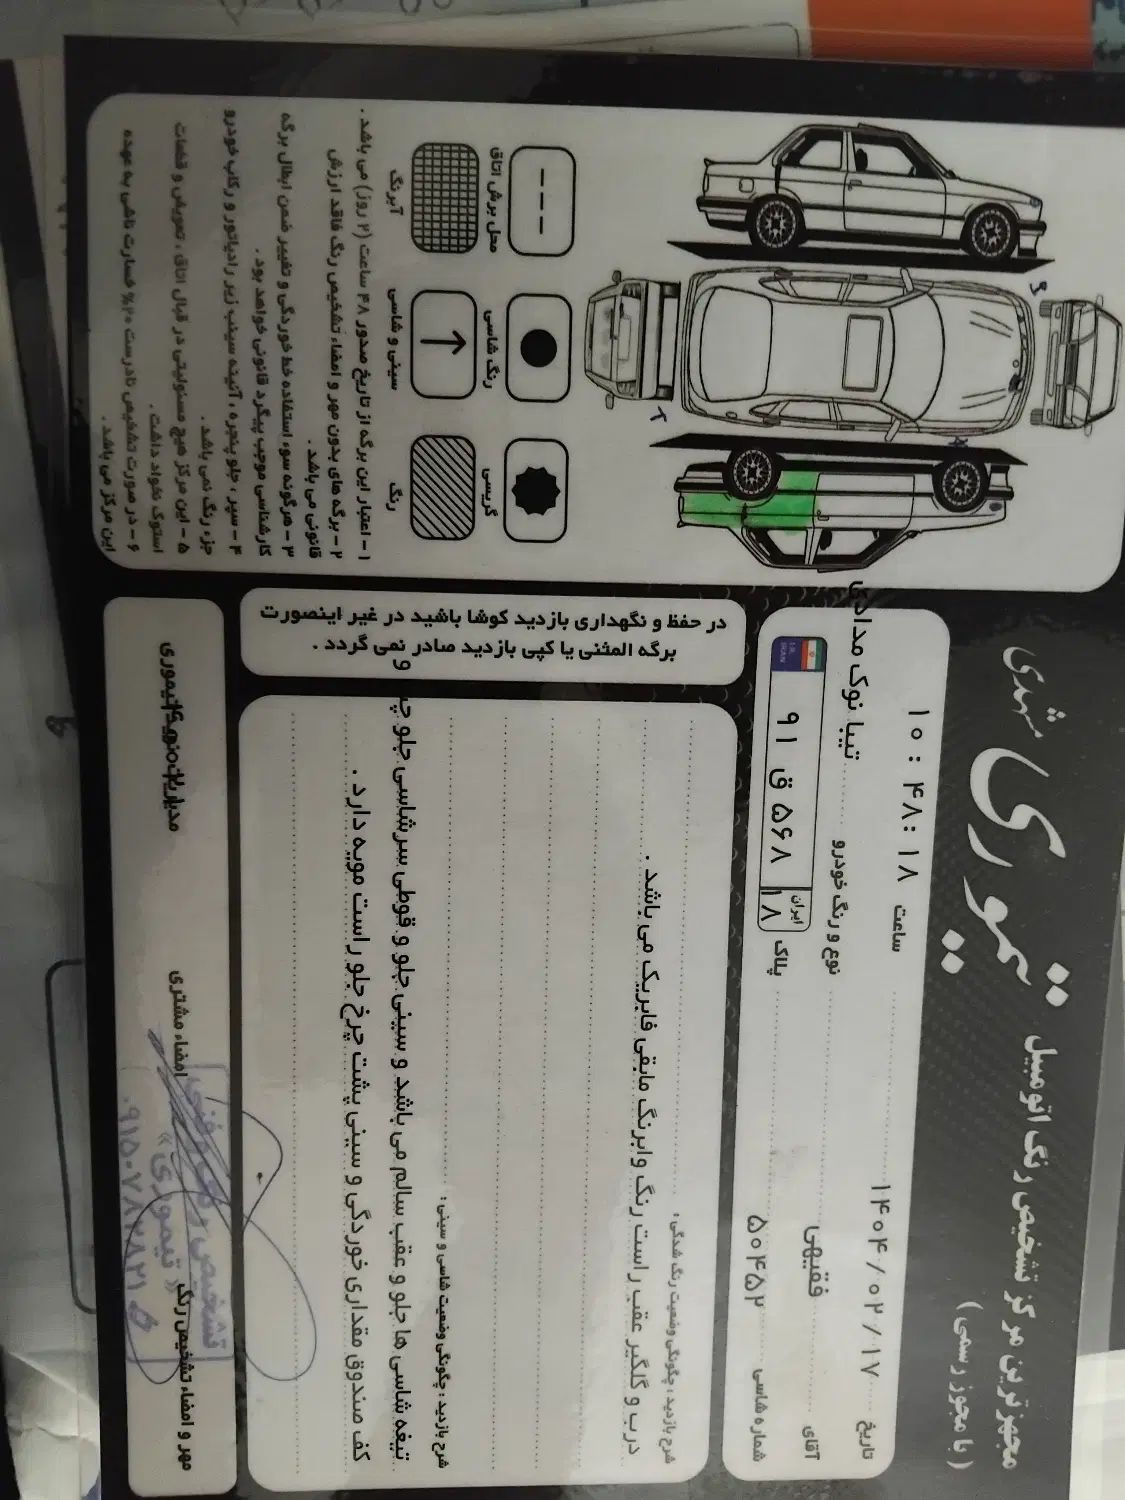 مجهزترین مرکز تشخیص رنگ اتومبیل
( با مجوز رسمی )
تیموری
مهدی
تاریخ ۱۴۰۴/۰۲/۱۷
ساعت ۱۰:۴۸:۱۸
آقای فقیهی
نوع و رنگ خودرو تیبا نوک مدادی
شماره شاسی ۵۰۴۵۲
پلاک ۹۱ ق ۵۶۸ ایران ۱۸
I.R. IRAN
شرح بازدید : چگونگی وضعیت رنگ شدگی :
درب و گلگیر عقب راست رنگ وابرنگ مابقی فابریک می باشد .
شرح بازدید : چگونگی وضعیت شاسی و سینی :
تیغه شاسی ها جلو و عقب سالم می باشد و سینی جلو و قوطی سرشاسی جلو چپ و
کف صندوق مقداری خوردگی و سینی پشت چرخ جلو راست مویه دارد .
در حفظ و نگهداری بازدید کوشا باشید در غیر اینصورت
برگه المثنی یا کپی بازدید صادر نمی گردد .
محل برش اتاق
رنگ شاسی
گریسی
آبرنگ
سینی و شاسی
رنگ
۱ – اعتبار این برگه از تاریخ صدور ۴۸ ساعت (۲ روز) می باشد .
۲ – برگه های بدون مهر و امضاء تشخیص رنگ فاقد ارزش
قانونی می باشد .
۳ – هرگونه سوء استفاده خط خوردگی و تغییر ضمن ابطال برگه
کارشناسی موجب پیگرد قانونی خواهد بود .
۴ – سپر ، جلو پنجره ، آئینه سینی زیر رادیاتور و رکاب خودرو
جزء رنگ نمی باشد .
۵ – این مرکز هیچ مسئولیتی در قبال اتاق ، تعویض و قطعات
استوک نخواد داشت .
۶ – در صورت تشخیص نادرست ۲۰% خسارت ناشی به عهده
این مرکز می باشد .
مهر و امضاء تشخیص رنگ
امضاء مشتری
تشخیص رنگ فنی
« تیموری »